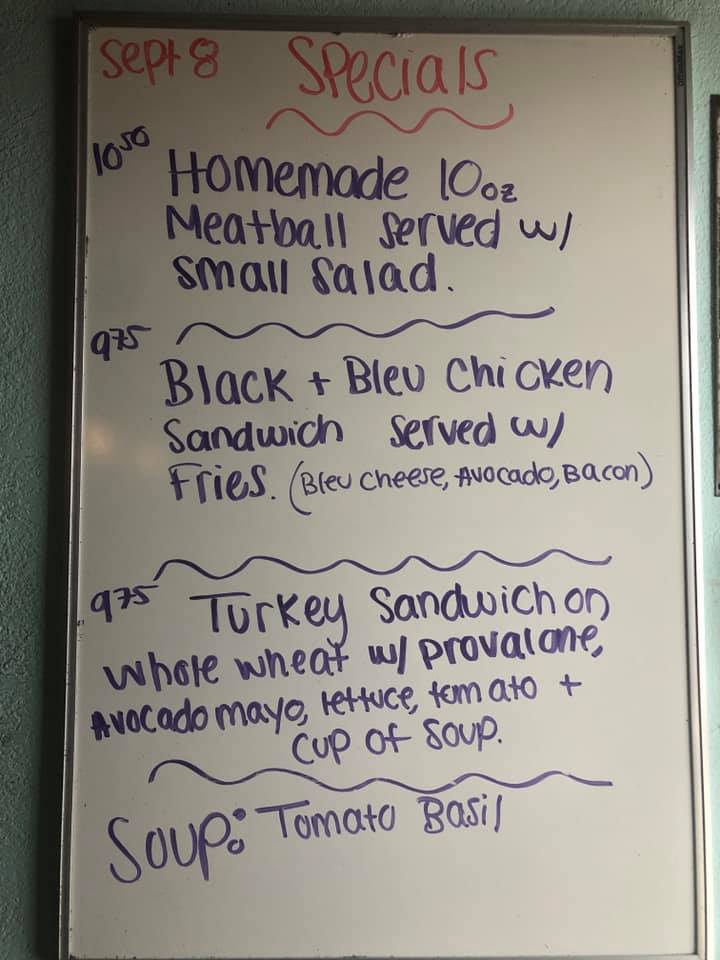 Sept 8 Specials
10⁵⁰ Homemade 10oz
Meatball served w/
small salad.
9⁷⁵
Black + Bleu Chicken
Sandwich served w/
Fries. (Bleu Cheese, Avocado, Bacon)
9⁷⁵ Turkey Sandwich on
whole wheat w/ provalone,
Avocado mayo, lettuce, tomato +
cup of soup.
Soup: Tomato Basil